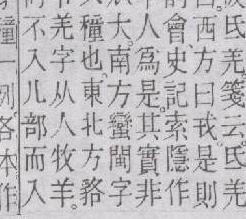 彼氐羌箋云氐羌
曰西方曰戎是則
會史記索隱作
人爲是其實非
大南方蠻閩字
種也東北方貉
羌字从人牧羊
不入儿部而入
種一例各本作